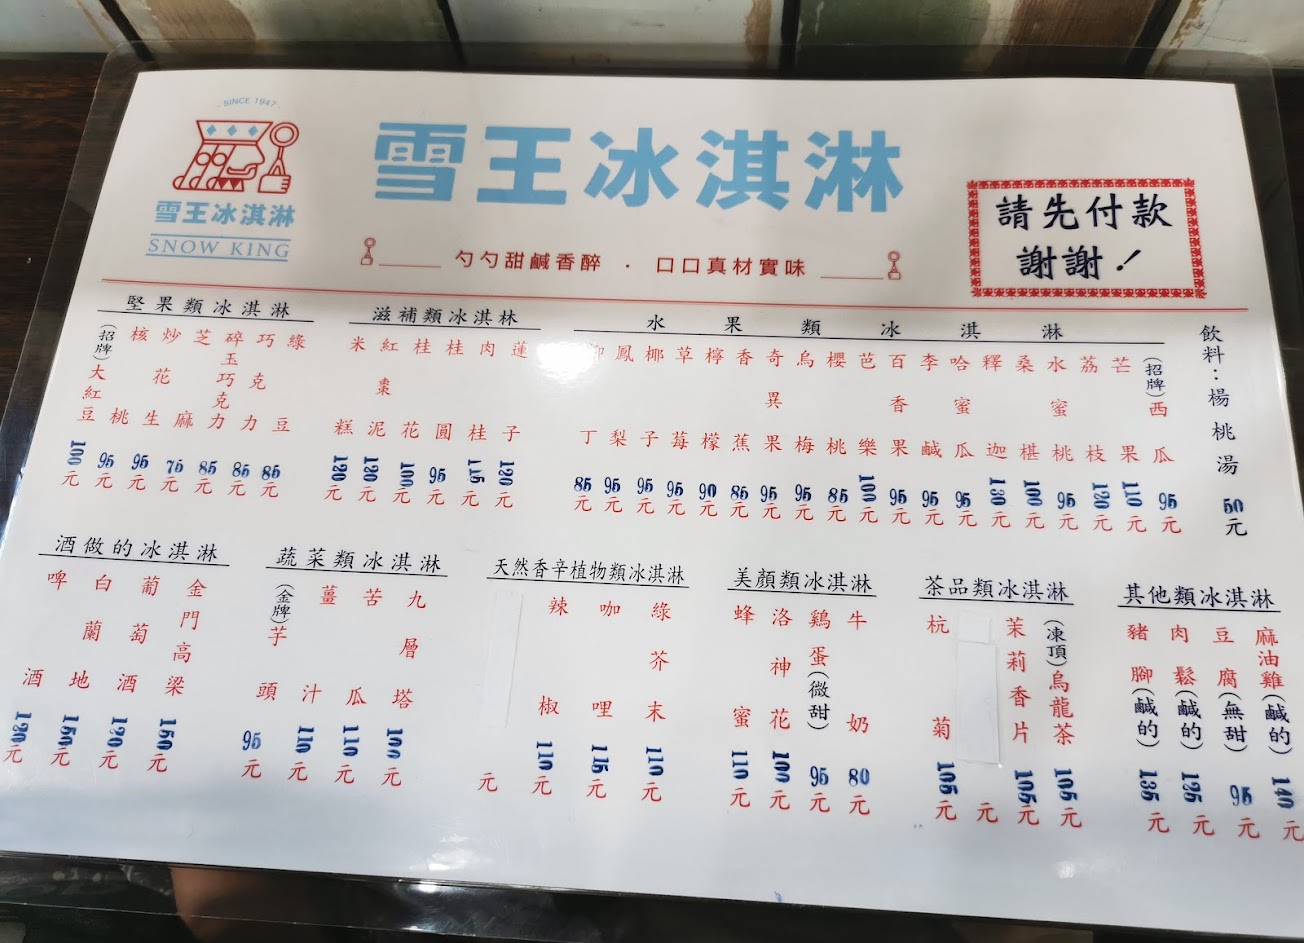 SINCE 1947
雪王冰淇淋
SNOW KING
雪王冰淇淋
勺勺甜鹹香醉 · 口口真材實味
請先付款
謝謝！
堅果類冰淇淋
(招牌)大紅豆 100元
核桃 95元
炒花生 95元
芝麻 75元
碎玉巧克力 85元
巧克力 85元
綠豆 85元
滋補類冰淇林
米糕 120元
紅棗泥 120元
桂花 100元
桂圓 95元
肉桂 115元
蓮子 120元
水果類冰淇淋
柳丁 85元
鳳梨 95元
椰子 95元
草莓 95元
檸檬 90元
香蕉 85元
奇異果 95元
烏梅 95元
櫻桃 85元
芭樂 100元
百香果 95元
李鹹 95元
哈蜜瓜 95元
釋迦 130元
桑椹 100元
水蜜桃 95元
荔枝 120元
芒果 110元
(招牌)西瓜 95元
飲料：楊桃湯 50元
酒做的冰淇淋
啤酒 120元
白蘭地 150元
葡萄酒 120元
金門高梁 150元
蔬菜類冰淇淋
(金牌)芋頭 95元
薑汁 110元
苦瓜 110元
九層塔 100元
天然香辛植物類冰淇淋
元
辣椒 110元
咖哩 115元
綠芥末 110元
美顏類冰淇淋
蜂蜜 110元
洛神花 100元
鷄蛋(微甜) 95元
牛奶 80元
茶品類冰淇淋
杭菊 105元
元
茉莉香片 105元
(凍頂)烏龍茶 105元
其他類冰淇淋
豬腳(鹹的) 135元
肉鬆(鹹的) 125元
豆腐(無甜) 95元
麻油雞(鹹的) 140元